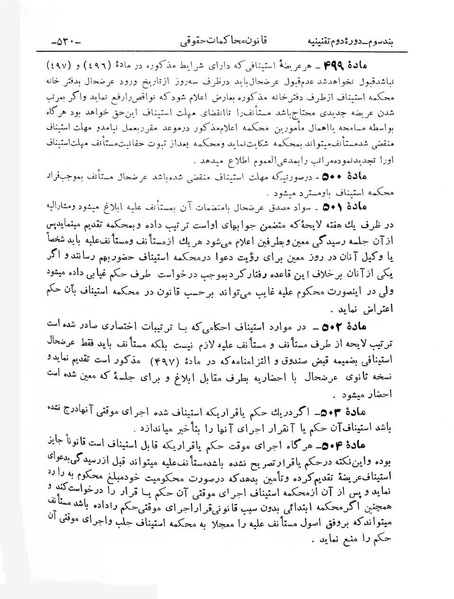 بند سوم ـ دورهٔ دوم تقنینیه قانون محاکمات حقوقی ـ۵۳۰ـ
مادهٔ ۴۹۹ ـ هر عریضهٔ استینافی که دارای شرایط مذکوره در مادهٔ (۴۹۶) و (۴۹۷)
نباشد قبول نخواهد شد عدم قبول عرضحال باید در ظرف سه روز از تاریخ ورود عرضحال بدفتر خانه
محکمه استیناف از طرف دفتر خانه مذکوره بعارض اعلام شود که نواقص را رفع نماید و اگر مرتب
شدن عریضه جدیدی محتاج باشد مستأنف را تا انقضای مهلت استیناف این حق خواهد بود هر گاه
بواسطه مسامحه یا اهمال مأمورین محکمه اعلام مذکور در موعد مقرر بعمل نیامد و مهلت استیناف
منقضی شد مستأنف میتواند بمحکمه شکایت نماید و محکمه بعد از ثبوت حقانیت مستأنف مهلت استیناف
او را تجدید نموده مراتب را بمدعی العموم اطلاع میدهد .
مادهٔ ۵۰۰ ـ در صورتیکه مهلت استیناف منقضی شده باشد عرضحال مستأنف بموجب قرار
محکمه استیناف باو مسترد میشود .
مادهٔ ۵۰۱ ـ سواد مصدق عرضحال با منضمات آن بمستأنف علیه ابلاغ میشود و مشارالیه
در ظرف یک هفته لایحهٔ که متضمن جوابهای او است ترتیب داده و بمحکمه تقدیم مینماید پس
از آن جلسه رسیدگی معین و بطرفین اعلام می‌شود هر یك از مستأنف و مستأنف علیه باید شخصاً
یا وکیل آنان در روز معین برای رؤیت دعوا در محکمه استیناف حضور بهم رسانند و اگر
یکی از آنان بر خلاف این قاعده رفتار کرد بموجب درخواست طرف حکم غیابی داده میشود
ولی در اینصورت محکوم علیه غایب می‌تواند بر حسب قانون در محکمه استیناف بآن حکم
اعتراض نماید .
مادهٔ ۵۰۲ ـ در موارد استیناف احکامی که با ترتیبات اختصاری صادر شده است
ترتیب لایحه از طرف مستأنف و مستأنف علیه لازم نیست بلکه مستأنف باید فقط عرضحال
استینافی بضمیمه قبض صندوق و التزامنامه که در مادهٔ (۴۹۷) مذکور است تقدیم نماید و
نسخه ثانوی عرضحال با احضاریه بطرف مقابل ابلاغ و برای جلسهٔ که معین شده است
احضار میشود .
مادهٔ ۵۰۳ ـ اگر در یك حکم یا قراریکه استیناف شده اجرای موقتی آنها درج نشده
باشد استیناف آن حکم یا آنقرار اجرای آنها را بتأخیر میاندازد .
مادهٔ ۵۰۴ ـ هر گاه اجرای موقت حکم یا قراریکه قابل استیناف است قانوناً جایز
بوده و این نکته در حکم یا قرار تصریح نشده باشد مستأنف علیه میتواند قبل از رسیدگی بدعوای
استیناف عریضهٔ تقدیم کرده و تأمین بدهد که در صورت محکومیت خود مبلغ محکوم به را رد
نماید و پس از آن از محکمه استیناف اجرای موقتی آن حکم یا قرار را درخواست کند و
همچنین اگر محکمه ابتدائی بدون سبب قانونی قرار اجرای موقتی حکم را داده باشد مستأنف
میتواند که بر وفق اصول مستأنف علیه را معجلا به محکمه استیناف جلب و اجرای موقتی آن
حکم را منع نماید .